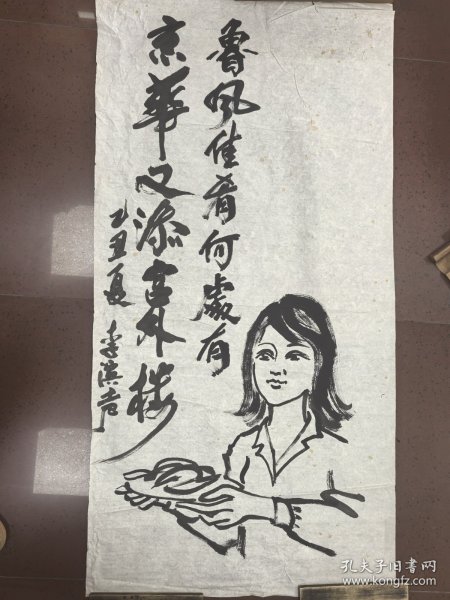 魯风佳肴何處有
京華又添宫外楼
乙丑夏 李滨声
孔夫子旧书网
www.kongfz.com